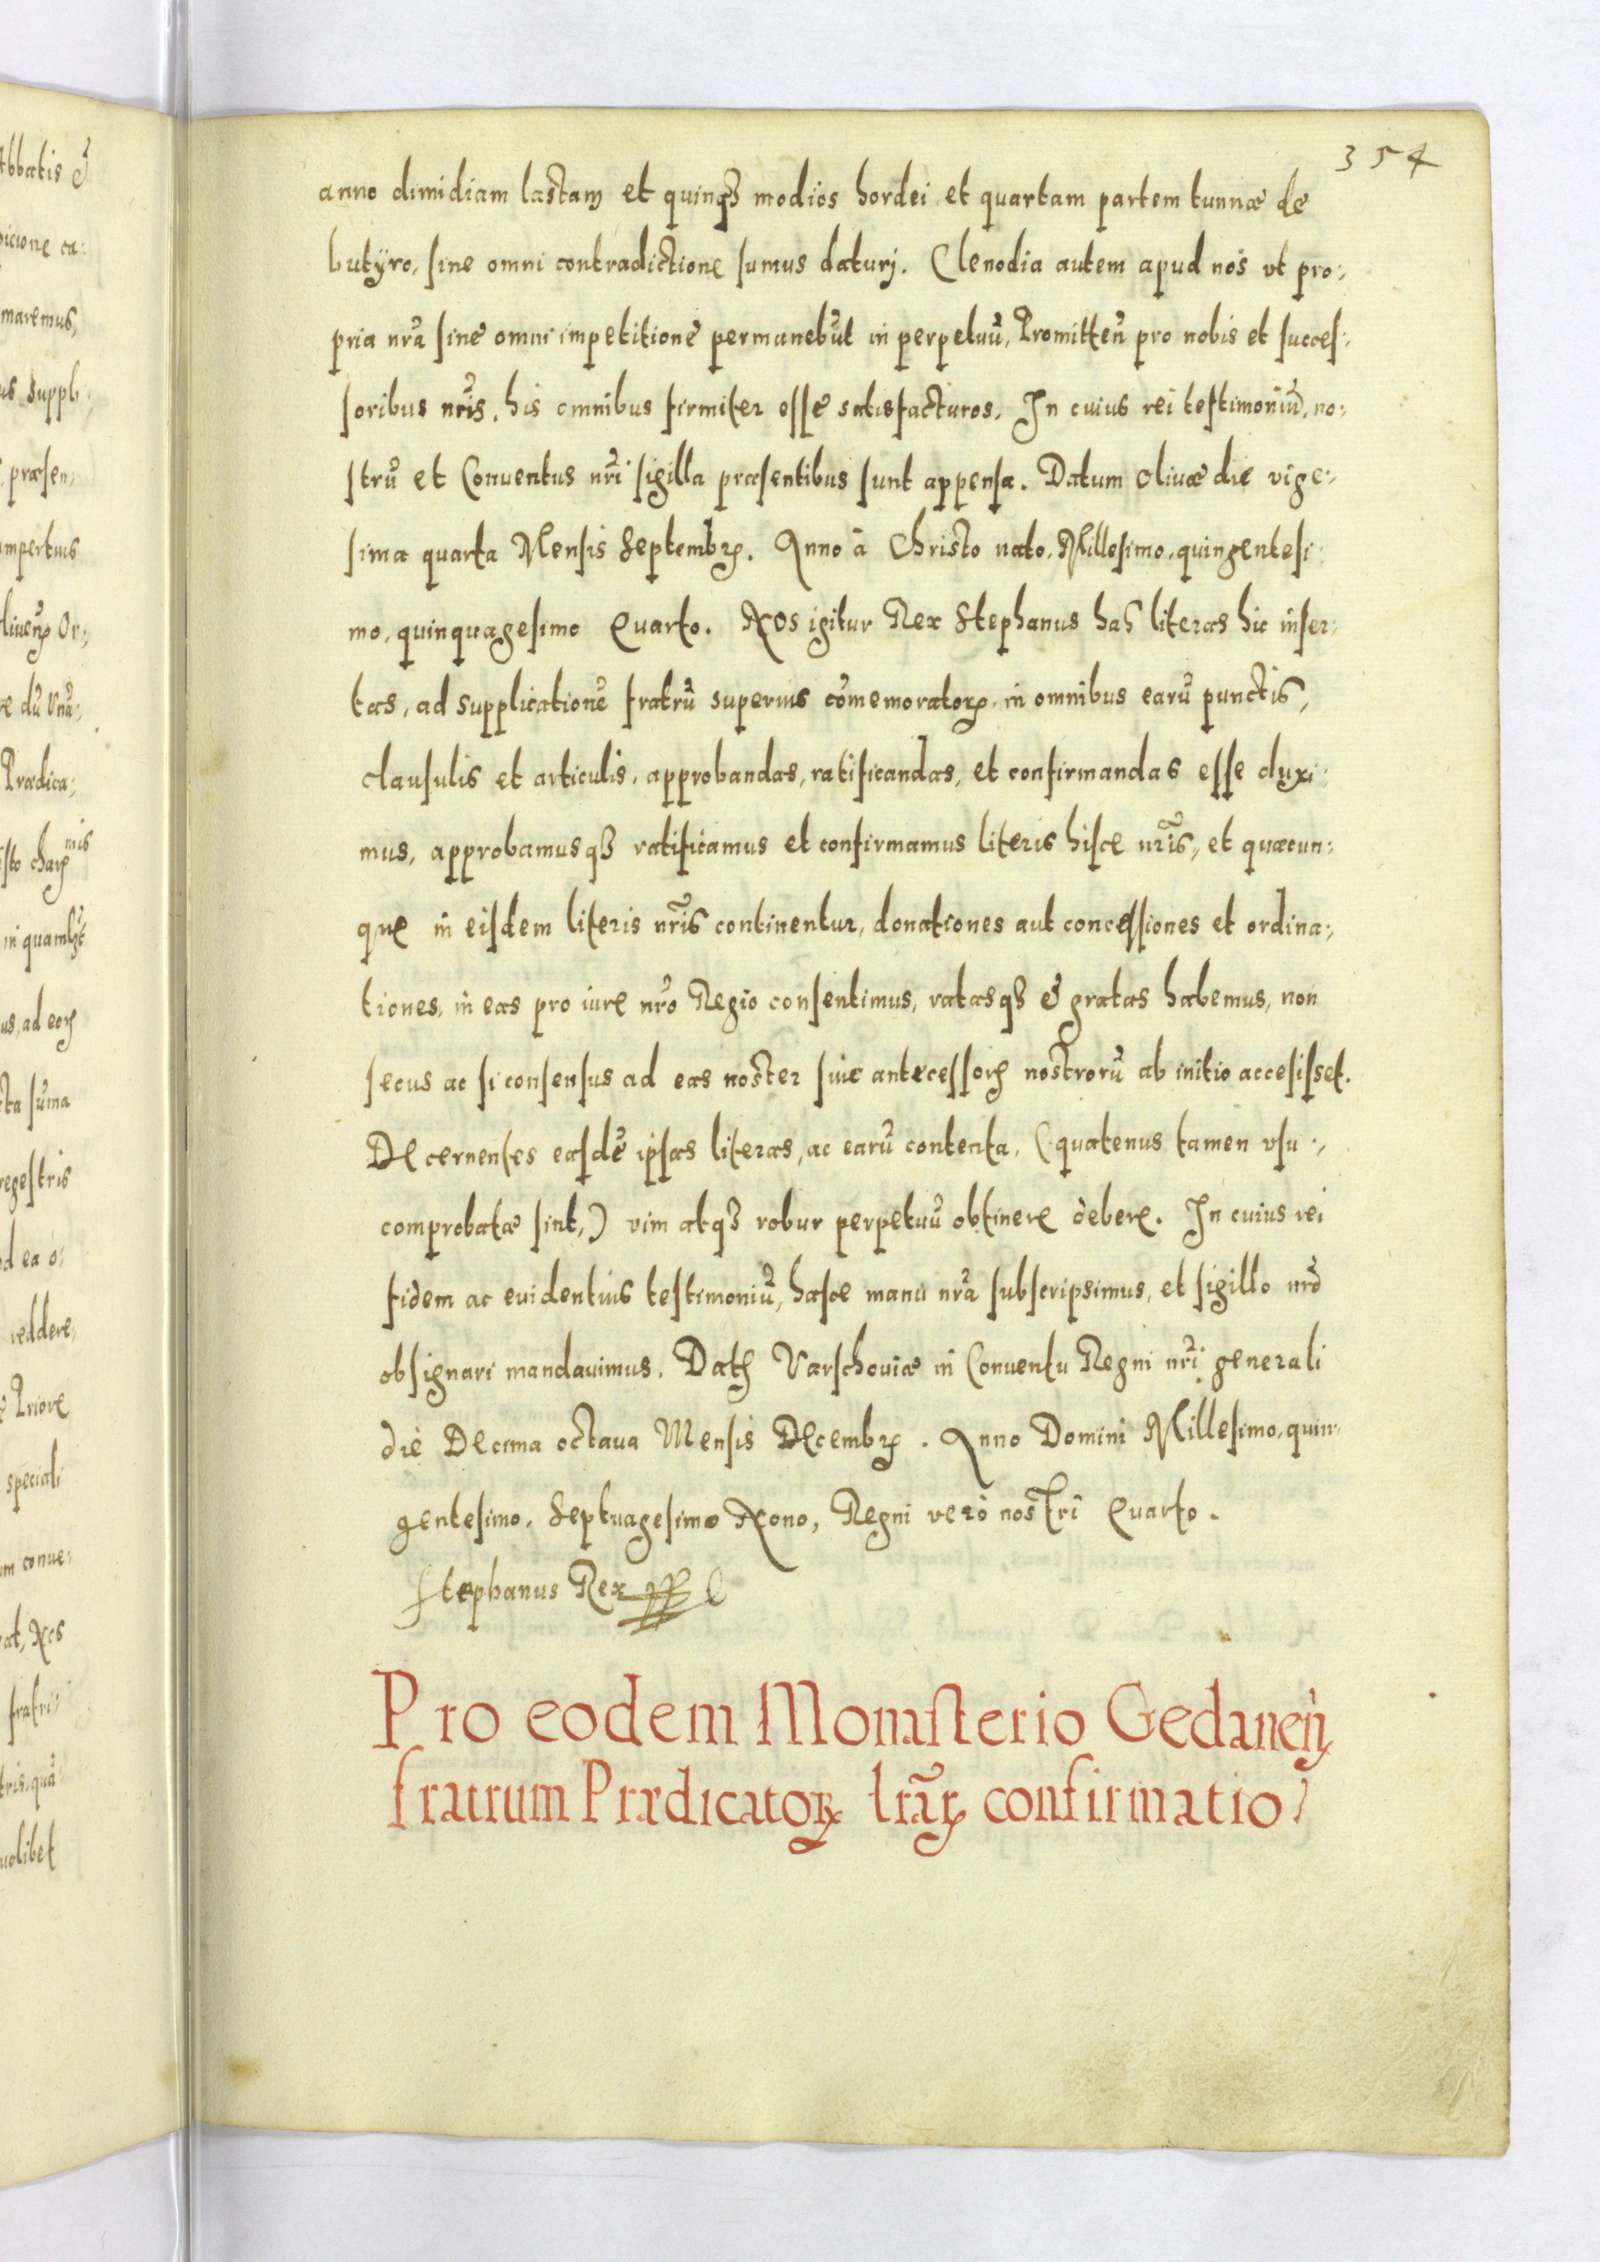 354
anno dimidiam lastam et quinqꝫ modios hordei et quartam partem tunnæ de
butÿro, sine omni contradictione sumus daturj. Clenodia autem apud nos vt pro:
pria nrã sine omni impetitione permanebũt in perpetuũ, Promitteñ pro nobis et succes:
soribus nris̃, his omnibus firmiter esse satisfacturos. In cuius rei testimoniũ, no:
strũ et Conuentus nrĩ sigilla præsentibus sunt appensa. Datum Oliuæ die vige:
sima quarta Mensis Septembrꝭ. Anno à Christo nato, Millesimo, quingentesi:
mo, quinquagesimo Quarto. Nos igitur Rex Stephanus has literas hic inser:
tas, ad supplicationẽ fratrũ superius cõmemoratoꝝ, in omnibus earũ punctis,
clausulis et articulis, approbandas, ratificandas, et confirmandas esse duxi:
mus, approbamusqꝫ ratificamus et confirmamus literis hisce nrĩs, et quæcun:
que in eisdem literis nrĩs continentur, donationes aut concessiones et ordina:
tiones, in eas pro iure nrõ Regio consentimus, ratasqꝫ & gratas habemus, non
secus ac si consensus ad eas noster siue antecessoꝝ nostrorũ ab initio accesisset.
Decernentes easdẽ ipsas literas, ac earũ contenta, (quatenus tamen vsu:
comprobatæ sint,) vim atqꝫ robur perpetuũ obtinere debere. In cuius rei
fidem ac euidentius testimoniũ, hasce manu nrã subscripsimus, et sigillo nrõ
obsignari mandauimus. Datꝭ Varschouiæ in Conuentu Regni nrĩ generali
die Decima octaua Mensis Decembrꝭ. Anno Domini Millesimo, quin:
gentesimo, Septuagesimo Nono, Regni verò nostri Quarto.
Stephanus Rex
Pro eodem Monasterio Gedaneñ
fratrum Prædicatoꝝ lrãꝝ confirmatio
Abbatis &
picione ca:
maremus,
us suppli
præsen,
mpertuis
Or:
Prædica:
mis
ad
ta sũma
regestris
d ea o:
reddere,
Priore
speciali
m conue:
at, Nos
fratri:
tris, quã
uolibet